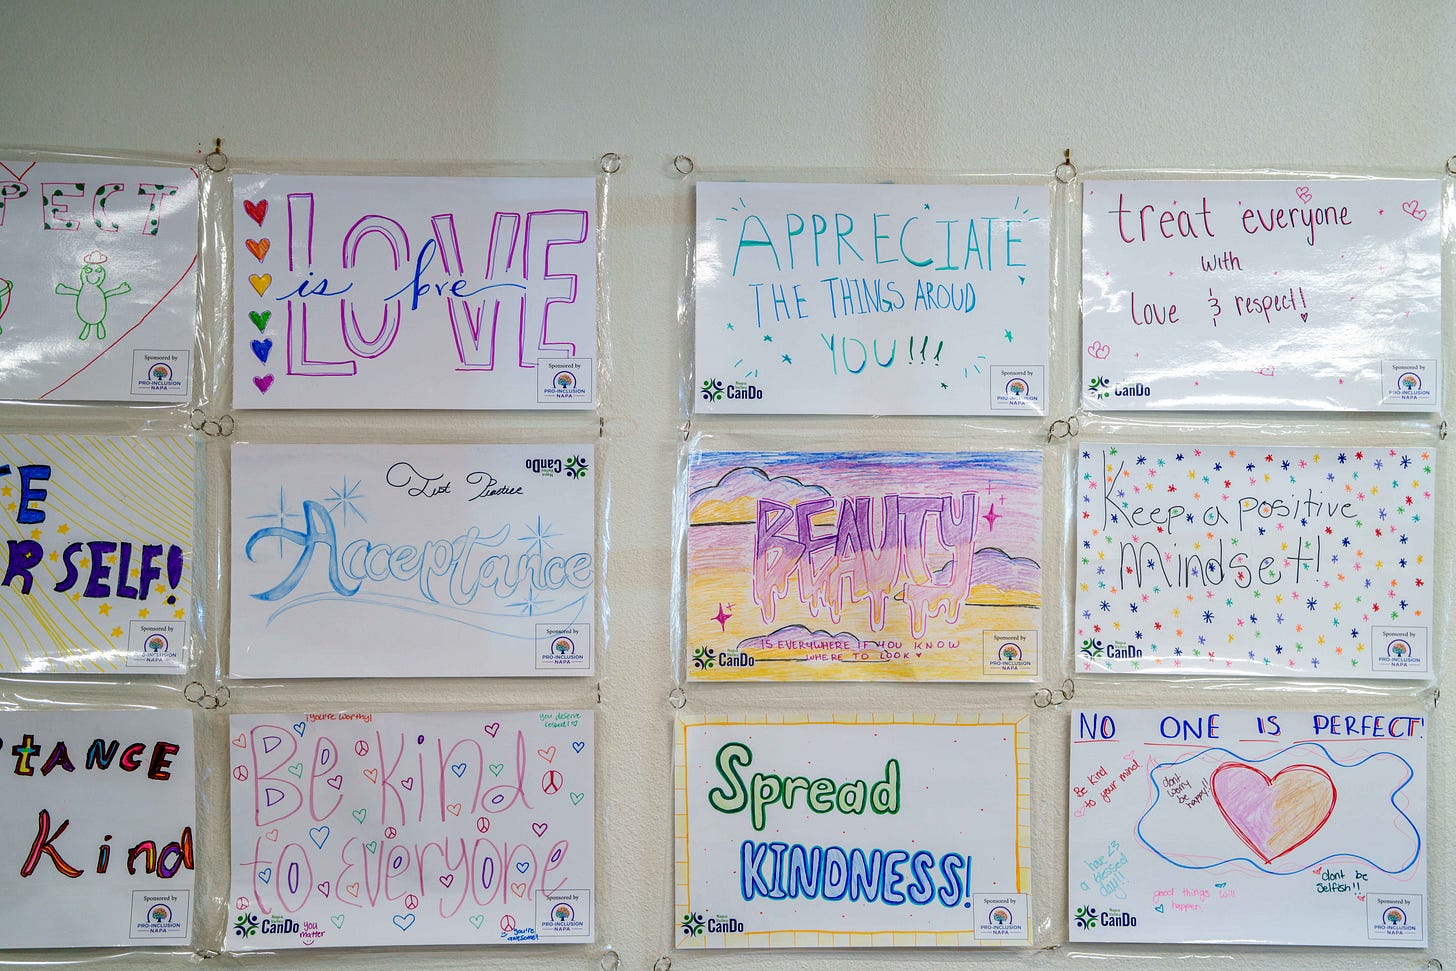 PECT
Sponsored by
PRO-INCLUSION
NAPA
LOVE
is love
Sponsored by
PRO-INCLUSION
NAPA
APPRECIATE
THE THINGS AROUD
YOU!!!
Napa Valley
CanDo
Sponsored by
PRO-INCLUSION
NAPA
treat everyone
with
love & respect!
CanDo
Sponsored by
PRO-INCLUSION
NAPA
E
R SELF!
Sponsored by
PRO-INCLUSION
NAPA
Napa Valley
CanDo
Acceptance
Sponsored by
PRO-INCLUSION
NAPA
BEAUTY
IS EVERYWHERE IF YOU KNOW
WHERE TO LOOK
Napa Valley
CanDo
Sponsored by
PRO-INCLUSION
NAPA
Keep a positive
Mindset!
CanDo
Sponsored by
PRO-INCLUSION
NAPA
TANCE
Kind
Sponsored by
PRO-INCLUSION
NAPA
you're worthy!
you deserve
respect!
Be kind
to everyone
Napa Valley
CanDo
you
matter
you're
awesome!
Sponsored by
PRO-INCLUSION
NAPA
Spread
KINDNESS!
Napa Valley
CanDo
Sponsored by
PRO-INCLUSION
NAPA
NO ONE IS PERFECT!
Be Kind
to your mind
dont
worry
be
happy!!
have
a blessed
day!!
good things will
happen
dont be
Selfish!!
Napa Valley
CanDo
Sponsored by
PRO-INCLUSION
NAPA